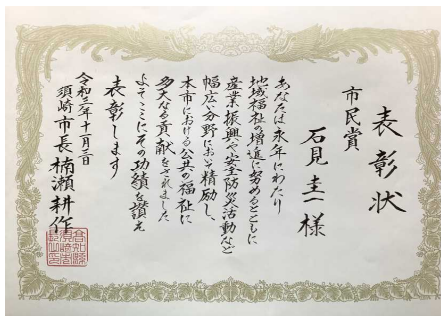 表彰状
市民賞
石見圭一様
あなたは永年にわたり
地域福祉の増進に努めるとともに
産業振興や安全防災活動など
幅広い分野において精励し、
本市における公共の福祉に
多大なる貢献をされました
よってここにその功績を讃え
表彰します
令和三年十一月三日
須崎市長 楠瀬耕作